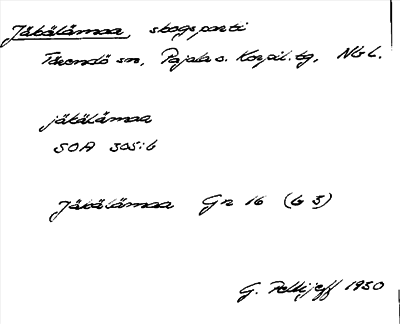 Jäkälämaa, skogsparti
Tärendö sn, Pajala o. Korpil. tg, Nbl.
jäkälämaa
SOA 305:6
Jäkälämaa Gn 16 (b 3)
G. Pellijeff 1950